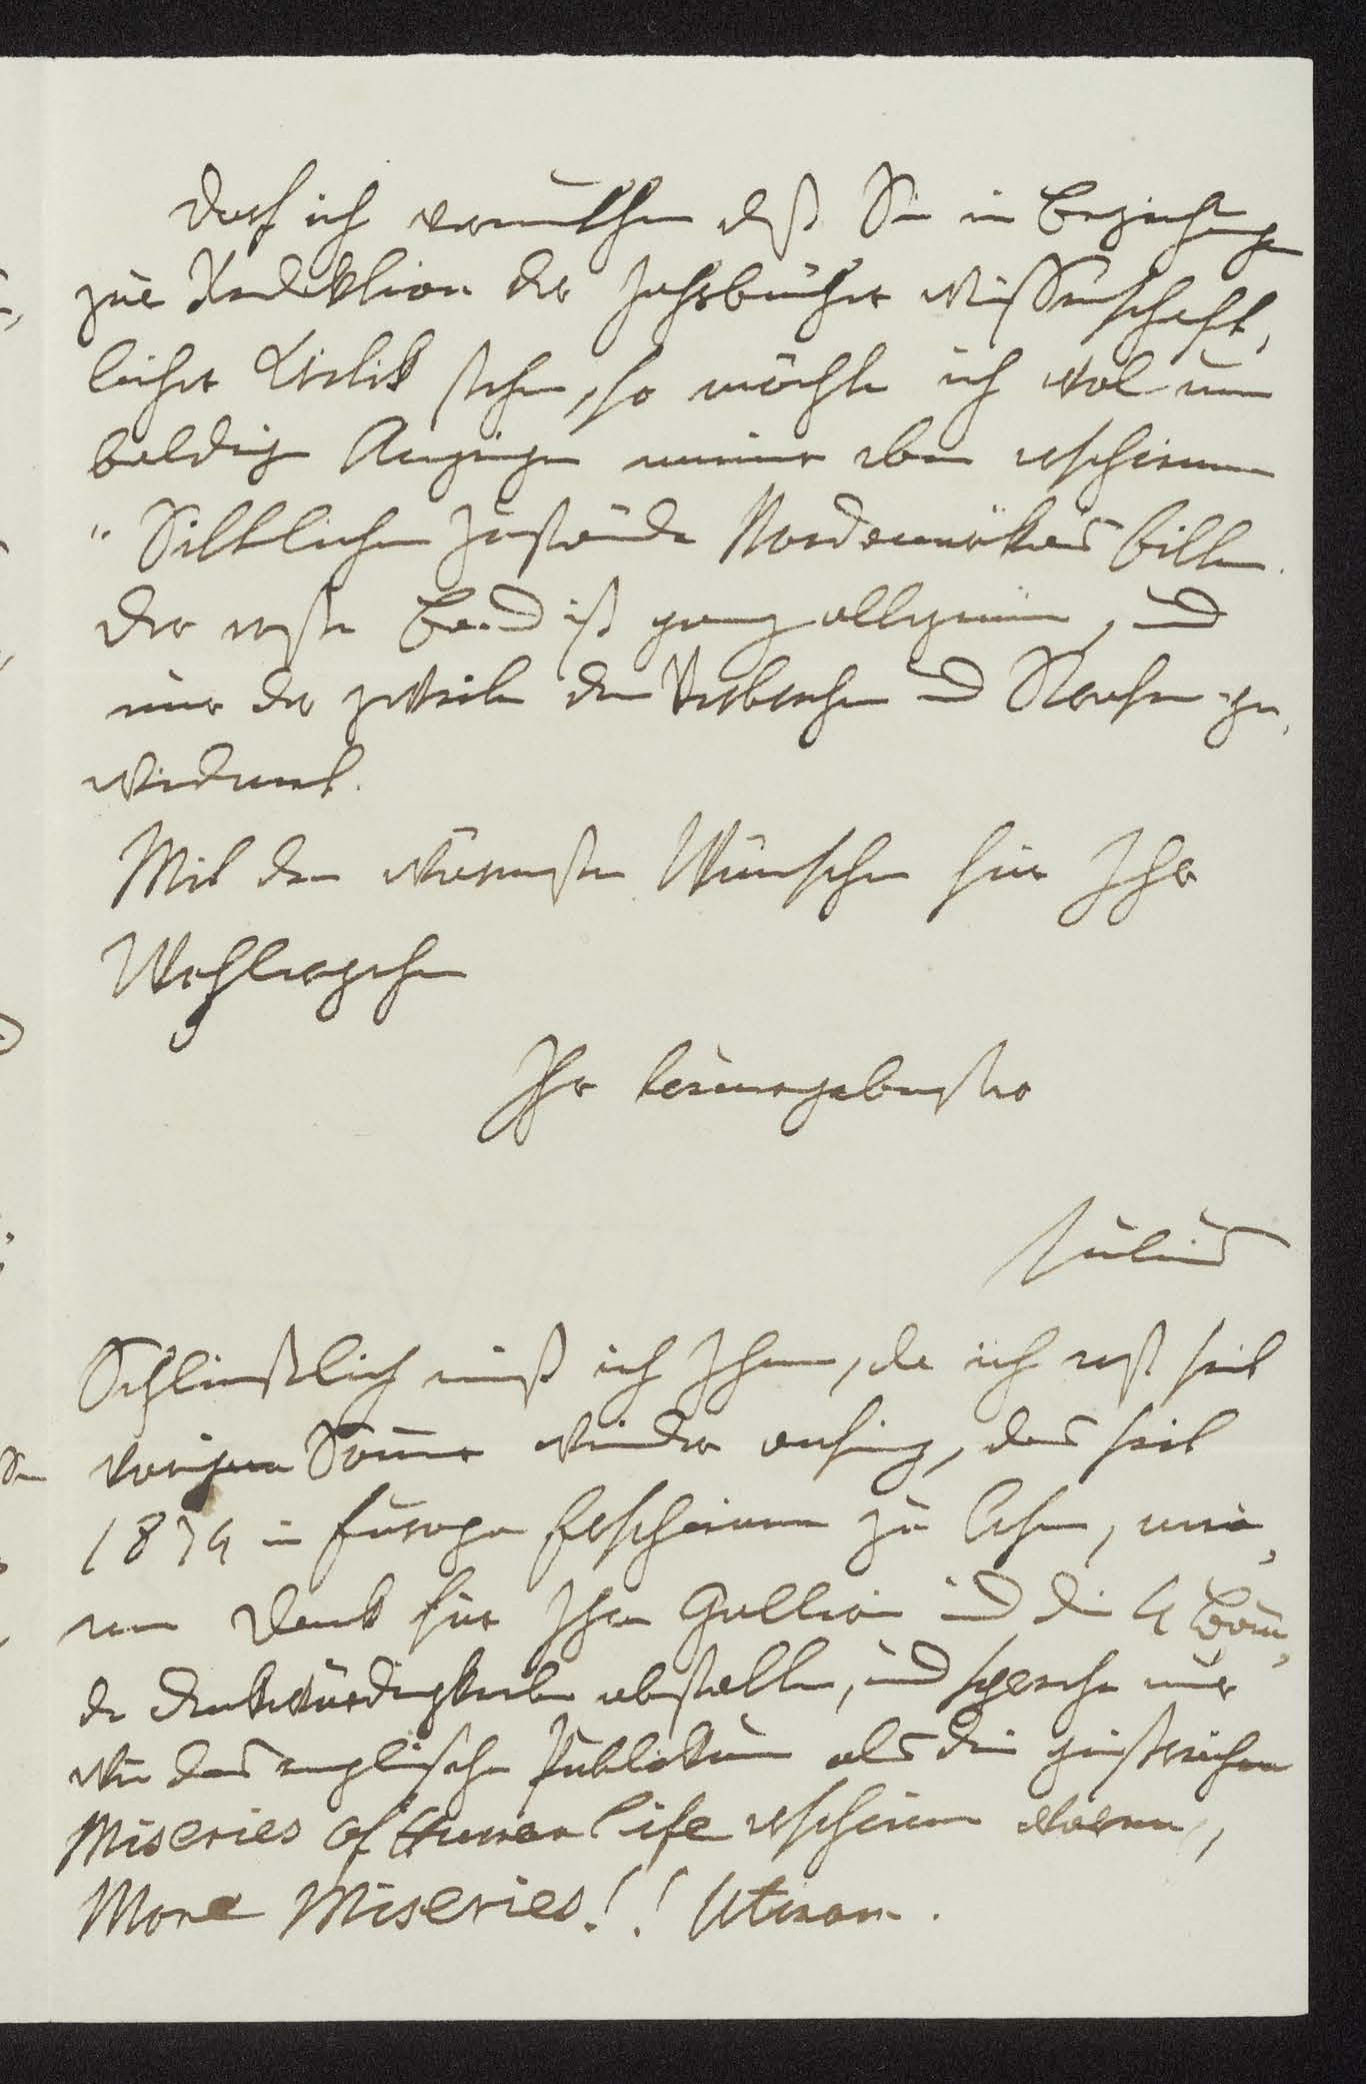 Darf ich vermuthen daß Sie in Beziehungen
zur Redaktion der Jahrbücher wissenschaft-
licher Kritik stehen, so möchte ich wol um
baldige Anzeige meiner eben erschienen
"Sittlichen Zustände Nordamerikas bitten.
Der erste Band ist ganz allgemein, und
nur der zweite den Verbrechen und Strafen ge-
widmet.
Mit den wärmsten Wünschen für Ihr
Wohlergehen
Ihr treuergebenster
Julius
Schließlich muß ich Ihnen, da ich erst seit
vorigem Sommer wieder anfing, das seit
1834 in Europa Erschienene zu lesen, mei-
nen Dank für Ihre Gallerie und die 4 Bän-
de Denkwürdigkeiten abstatten, und spreche nur
wie das englische Publikum als die geistreichen
Miseries of Human Life erschienen waren,
More Miseries!! Utinam.